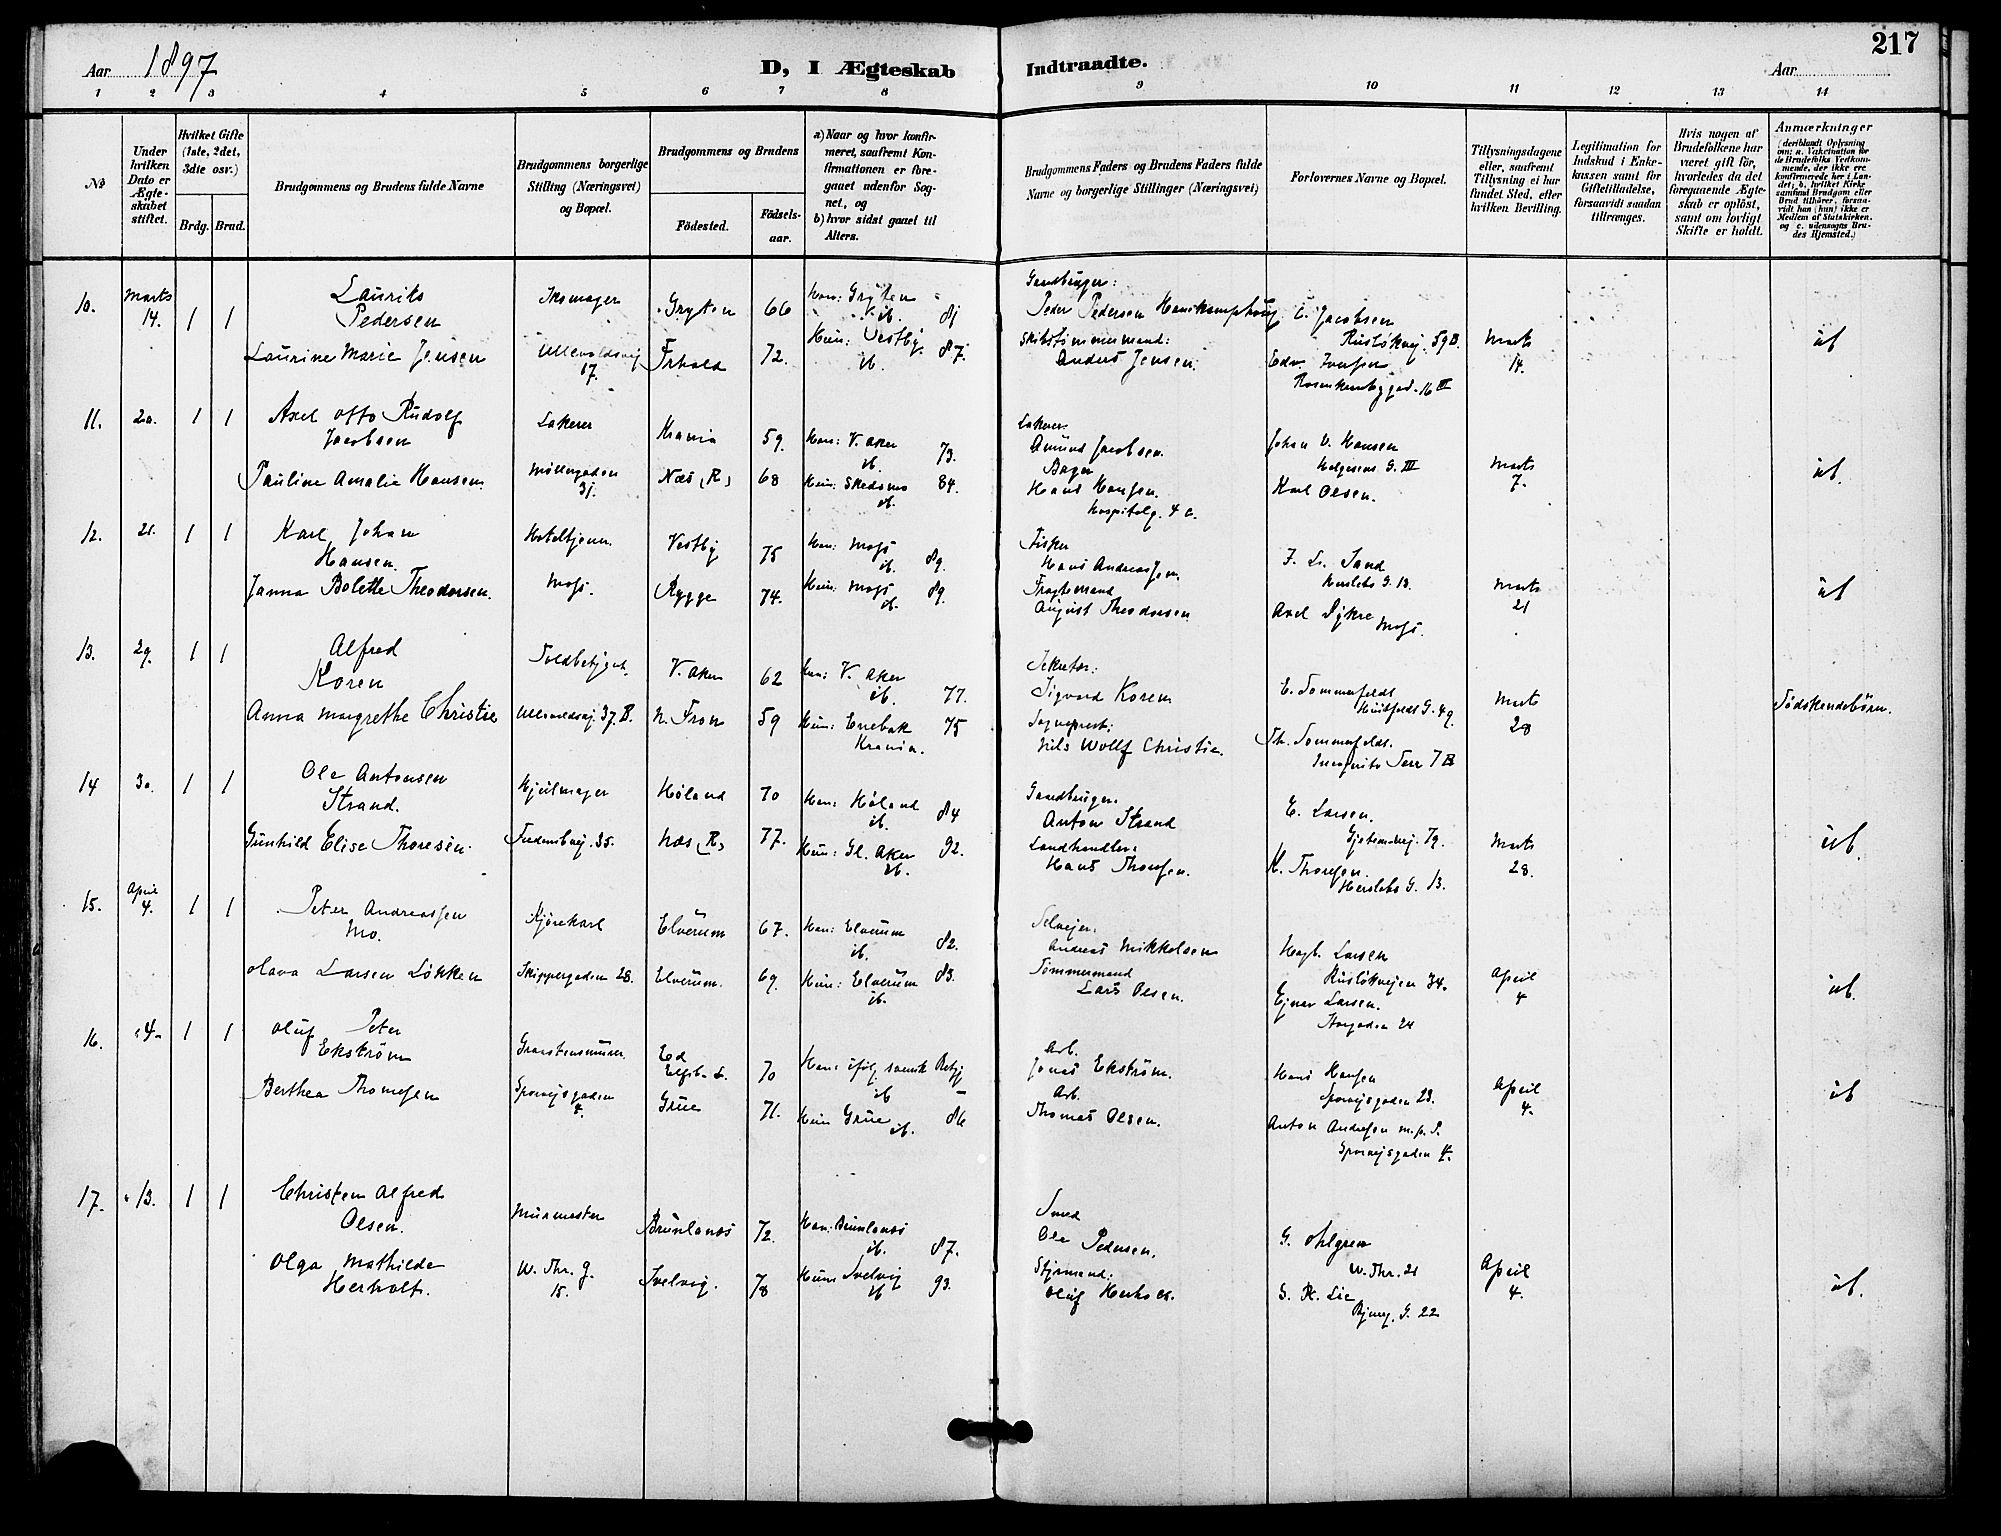 217
Aar 1897
D, I Ægteskab Indtraadte.
Aar
1 2 3 4 5 6 7 8 9 10 11 12 13 14
No
Under hvilken Dato er Ægteskabet stiftet.
Hvilket Gifte (1ste, 2det, 3die osv.)
Brdg. Brud.
Brudgommens og Brudens fulde Navne
Brudgommens borgerlige Stilling (Næringsvei) og Bopæl.
Brudgommens og Brudens
Födested.
Födselsaar.
a) Naar og hvor konfirmeret, saafremt Konfirmationen er foregaaet udenfor Sognet, og
b) hvor sidst gaaet til Alters.
Brudgommens Faders og Brudens Faders fulde Navne og borgerlige Stillinger (Næringsvei)
Forlovernes Navne og Bopæl.
Tillysningsdagene eller, saafremt Tillysning ei har fundet Sted, efter hvilken Bevilling.
Legitimation for Indskud i Enkekassen samt for Giftetilladelse, forsaavidt saadan tiltrænges.
Hvis nogen af Brudefolkene har været gift för, hvorledes da det foregaaende Ægteskab er oplöst, samt om lovligt Skifte er holdt.
Anmærkninger
(deriblandt Oplysning om: a. Vakcination for de Brudefolks Vedkommende, der ikke ere konfirmerede her i Landet; b. hvilket Kirkesamfund Brudgom eller Brud tilhörer, forsaavidt han (hun) ikke er Medlem af Statskirken, og c. udensogns Brudes Hjemsted.)
10. Marts 14. 1 1 Laurits Pedersen
Skomager
Gryten 66 Han: Gryten ib. 81
Gaardbruger:
Peder Pedersen
E. Jacobsen
Rusløkvej. 59 B.
Laurine Marie Jensen
Ullevoldsvej 17.
72. Hun: Vestby ib. 87.
Skibstimmermand:
Anders Jensen.
Marts 14.
ub
11. 20. 1 1 Axel Otto Rudolf Jacobsen
Lakerer
Krania 59. Han: V. Aker ib. 73.
Amund Jacobsen.
Johan V. Hansen
Helgesens G. III
Pauline Amalie Hansen.
Møllergaden 31.
Næs (R) 68 Hun: Skedsmo ib. 84.
Bager
Hans Hansen.
Hospitalg. 4 c.
Karl Olsen.
Marts 7.
ub.
12. 21. 1 1 Karl Johan Hansen.
Hoteltjener.
Vestby 75 Han: Moss ib. 89.
Fisker
Hans Andreassen.
Sand
Herslebs G. 13.
Janna Bolette Theodorsen.
Moss.
Rygge 74. Hun: Moss ib. 89.
Fragtemand
August Theodorsen
Axel Dykre
Moss.
Marts 21
ub
13. 29. 1 1 Alfred Koren
Toldbetjent.
V. Aker 62 Han: V. Aker ib. 77.
Sekretær:
Sigvard Koren
E. Sommerfeldt
Huitfeldts G. 49.
Anna Margrethe Christie
Ullevoldsvej. 37. B.
N. Fron 59 Hun: Enebak Krania. 75
Sogneprest:
Nils Wolff Christie.
Th. Sommerfeldt.
Incognito Terr 7 B
Marts 28
Sødskendebørn.
14 30. 1 1 Ole Antonsen Strand.
Hjulmager
Høland 70 Han: Høland ib. 84
Gaardbruger.
Anton Strand
E. Larsen.
Gunhild Elise Thoresen.
Næs (R) 77. Hun: Gl. Aker ib. 92.
Landhandler:
Hans Thoresen.
H. Thoresen.
Herslebs G. 13.
Marts 28.
ub.
15. April 4. 1 1 Peter Andreassen Mo.
Kjørekarl
Elverum 67. Han: Elverum ib. 82.
Selvejer.
Andreas Mikkelsen
Hagb. Larsen
Rusløkvejen 34.
Olava Larsen Løkken
Skippergaden 28.
Elverum. 69. Hun: Elverum ib. 83.
Tømmermand
Lars Olsen.
Ejner Larsen.
Storgaden 24
April 4
ub.
16. 4. 1 1 Oluf Peter Ekstrøm
Graastensmurer.
Ed 70 Han: ifølg. svensk Betj ib
Arb.
Jonas Ekstrøm.
Hans Hansen
Sporvejsgaden 23.
Berthea Thomesen
Sporvejsgaden 4.
Grue 71. Hun Grue ib. 86
Arb.
Thomas Olsen.
Anton Andresen m.p.P.
Sporvejsgaden 4.
April 4.
ub
17. 13. 1 1 Christen Alfred Olsen.
Murmester
Brunlanæs 72. Han: Brunlanæs ib. 87.
Smed
Ole Pedersen.
G. Ahlgren
W. Thr. 21
Olga Mathilde Herholt.
W. Thr. g. 15.
Svelvig. 78 Hun Svelvig ib 93.
Styrmand:
Oluf Herholt.
S. H. Lie
G. 22
April 4.
ub.